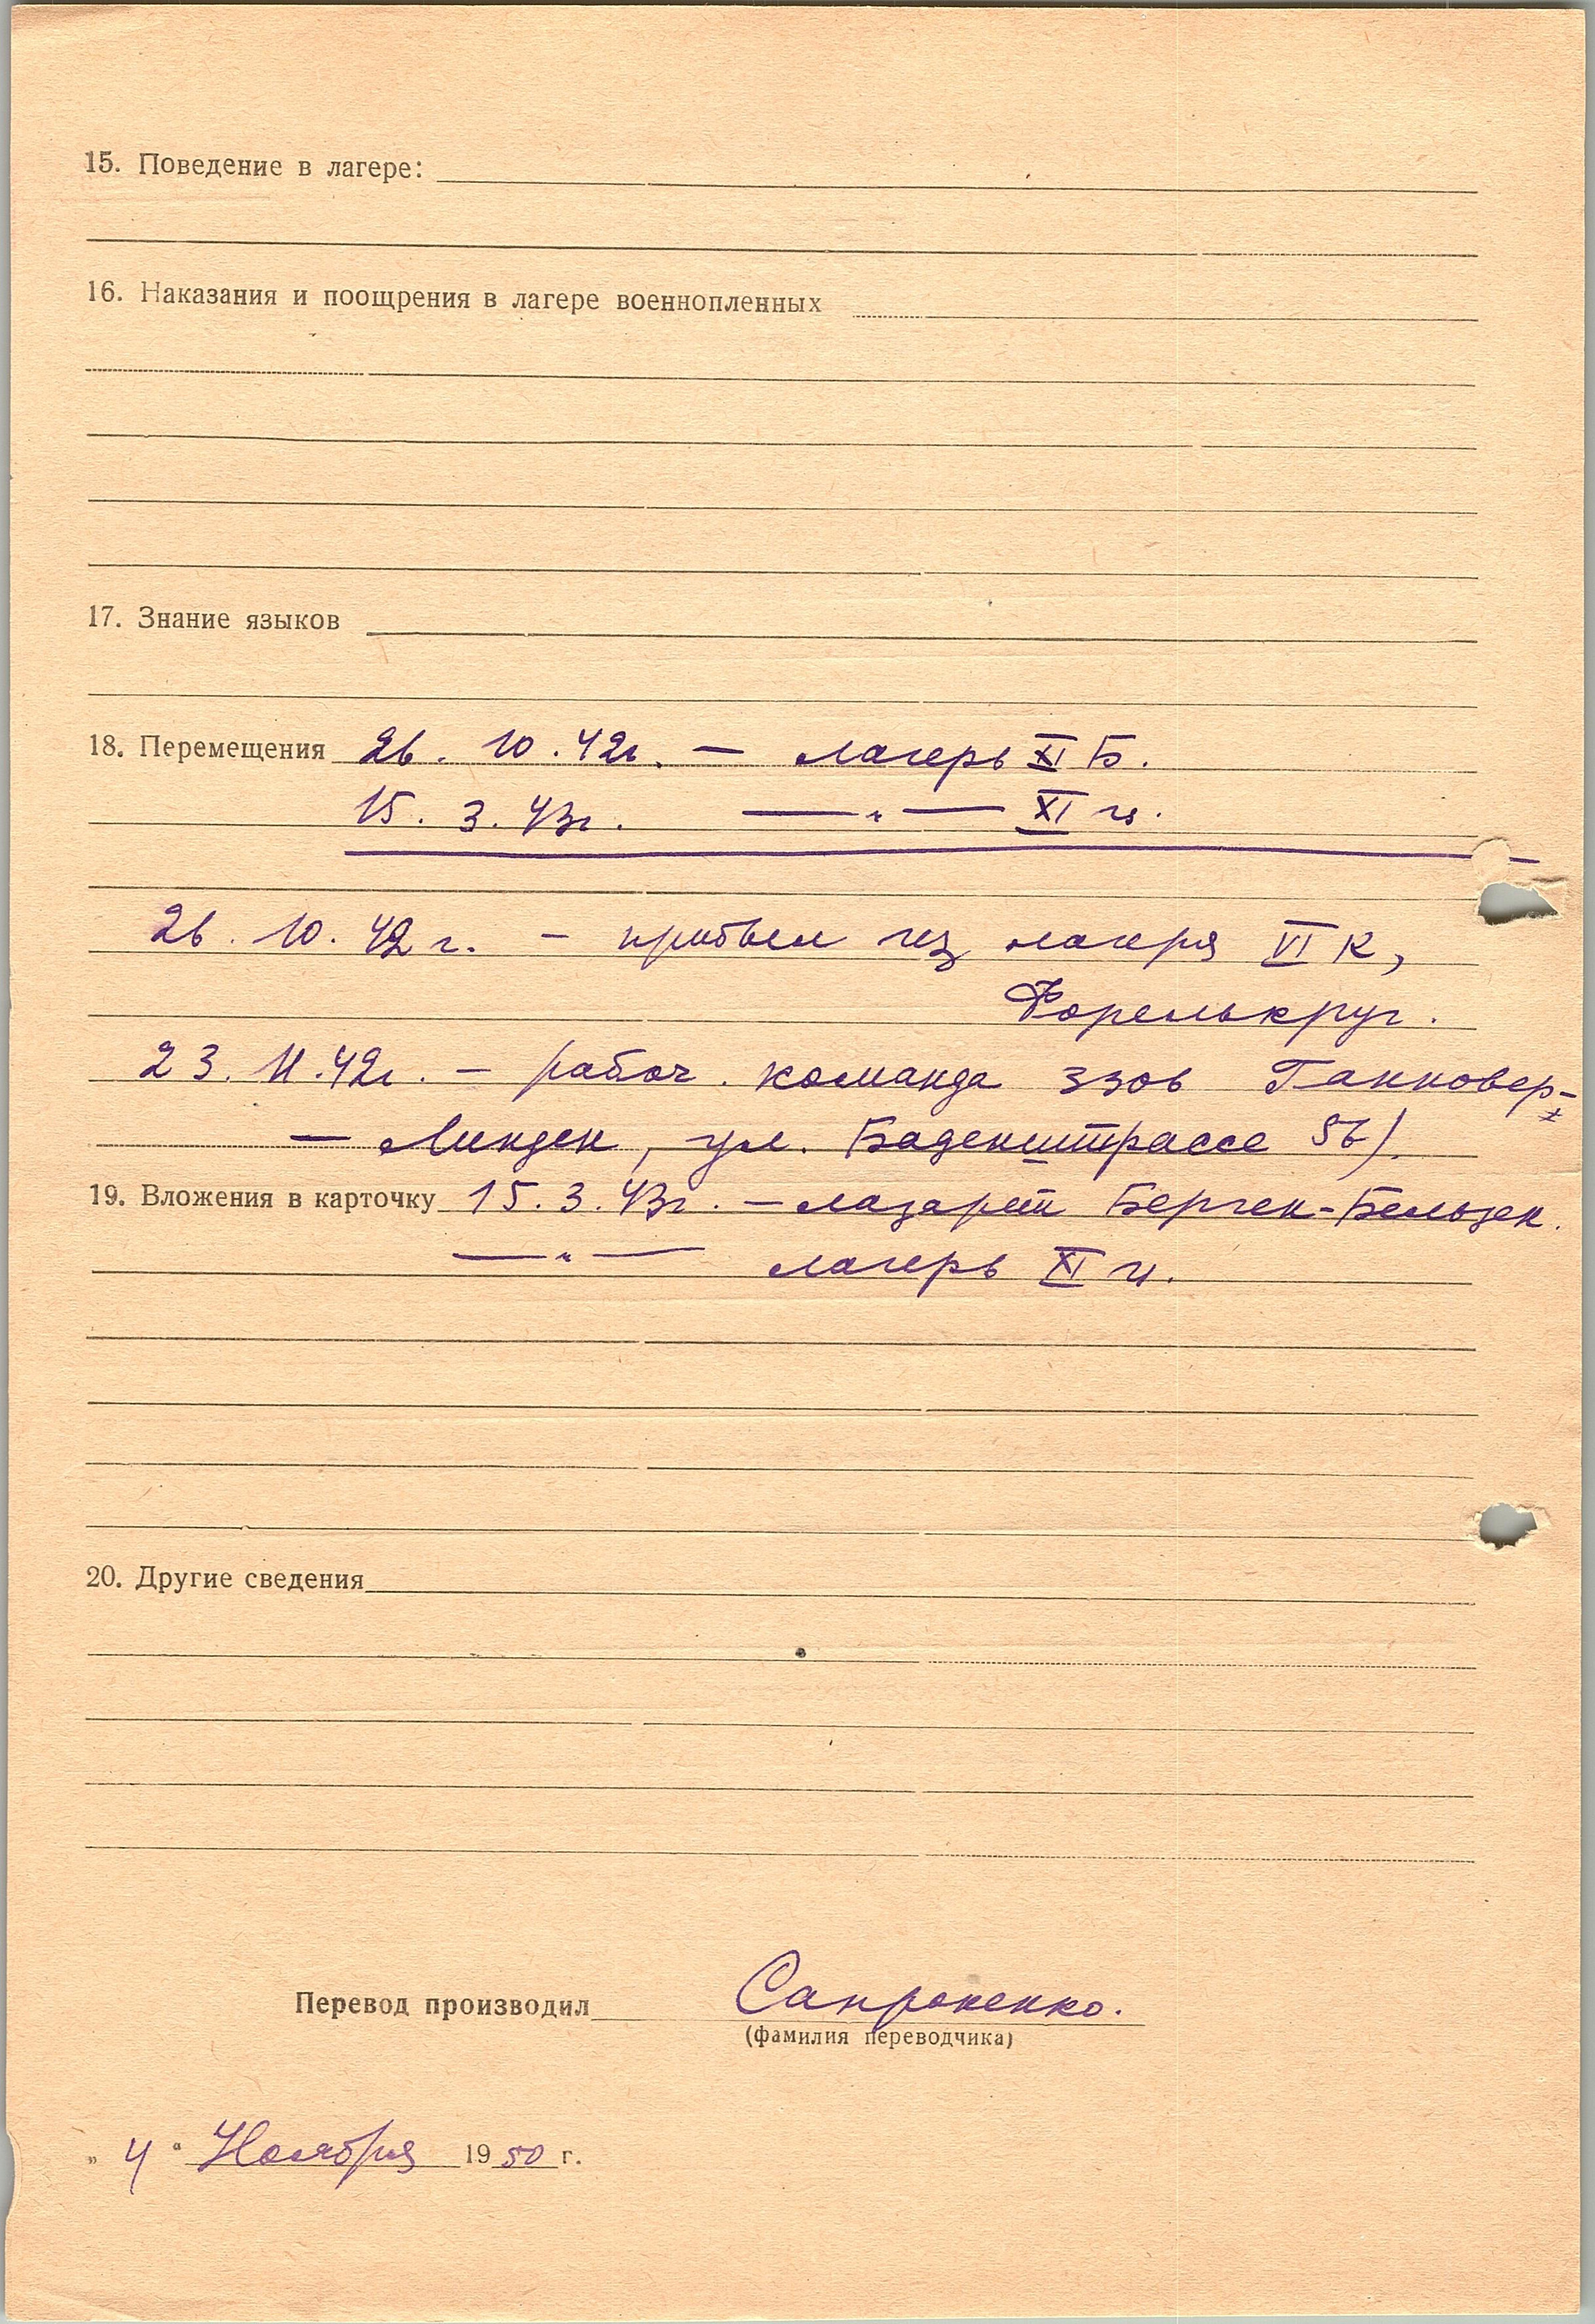 15. Поведение в лагере:
16. Наказания и поощрения в лагере военнопленных
17. Знание языков
18. Перемещения 26. 10. 42г. — лагерь XI Б.
15. 3. 43г. — " — XI ц.
26. 10. 42 г. – прибыл из лагеря VI К,
Форелькруг.
23. 11. 42г. – рабоч. команда 3306 Ганновер-
— Линден, ул. Баденштрассе 56).
19. Вложения в карточку 15. 3. 43г. – лазарет Берген-Бельзен.
— " — лагерь XI ц.
20. Другие сведения
Перевод производил Сапроненко.
(фамилия переводчика)
„ 4 “ Ноября 1950 г.